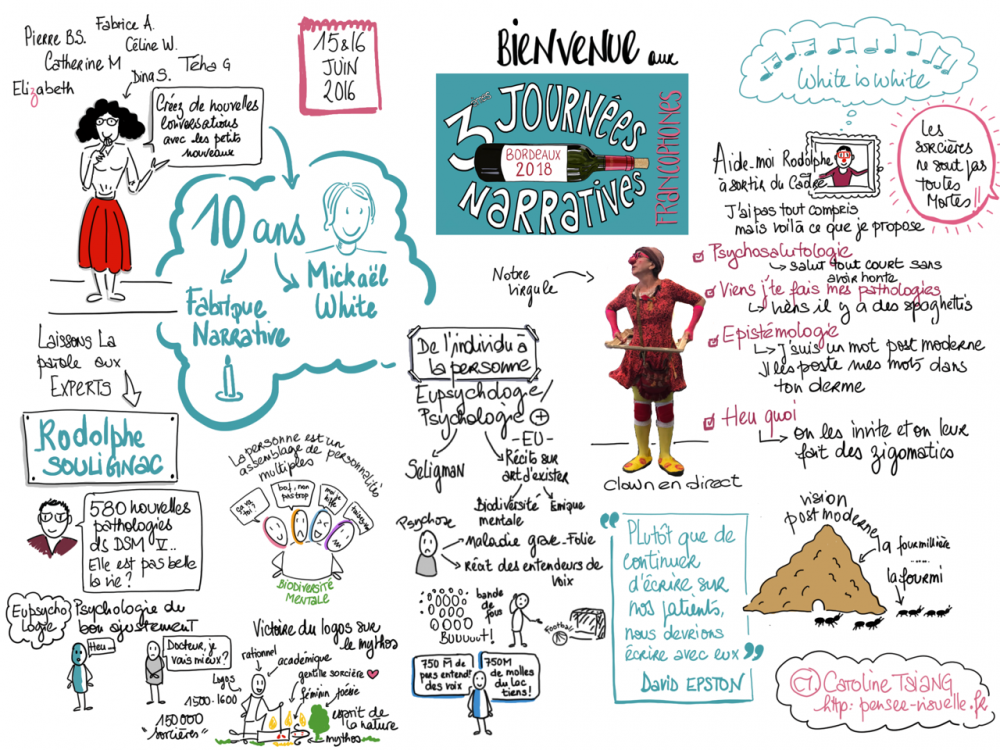 Fabrice A.
Pierre B.S.
Céline W.
Catherine M
Téha G
Dina S.
Elizabeth
Créez de nouvelles
conversations
avec les petits
nouveaux
15 & 16
JUIN
2016
BIENVENUE aux
3èmes JOURNÉES
BORDEAUX
2018
NARRATIVES
FRANCOPHONES
White is White
Aide-moi Rodolphe
à sortir du Cadre
Les
sorcières
ne sont pas
toutes
Mortes !!
J'ai pas tout compris
mais voilà ce que je propose
10 ans
Mickaël
White
Fabrique
Narrative
Notre
virgule
Psychosalutologie
salut tout court sans
avoir honte
Viens j'te fais mes pathologies
viens il y a des spaghettis
Epistémologie
J'suis un mot post moderne
J'les poste mes mots dans
ton derme
Heu quoi
on les invite et on leur
fait des zigomatics
clown en direct
Laissons La
parole aux
EXPERTS
Rodolphe
SOULIGNAC
580 nouvelles
pathologies
ds DSM V...
Elle est pas belle
la vie ?
La personne est un
assemblage de personnalités
multiples
ça va
toi ?
bof, non
pas trop
BIODIVERSITÉ
MENTALE
De l'individu à
la personne
Eupsychologie/
Psychologie +
Seligman
-EU-
Récits sur
art d'exister
Biodiversité
mentale
Emique
Psychose
maladie grave_Folie
récit des entendeurs de
voix
bande
de fous
Football
Buuuuut!
750 M de
pers entend!
des voix
750M
de molles
du loc
tiens !
Plutôt que de
continuer
d'écrire sur
nos patients,
nous devrions
écrire avec eux
DAVID EPSTON
vision
post moderne
la fourmillière
.....
la fourmi
Eupsycho
logie
Psychologie du
bon ajustement
Heu...
Docteur, je
vais mieux ?
Victoire du logos sur
le mythos
rationnel
académique
gentille sorcière
Logos
féminin
poésie
1500-1600
150 000
"sorcières"
esprit de
la nature
mythos
CT CAROLINE TSIANG
http: pensee-visuelle.fr